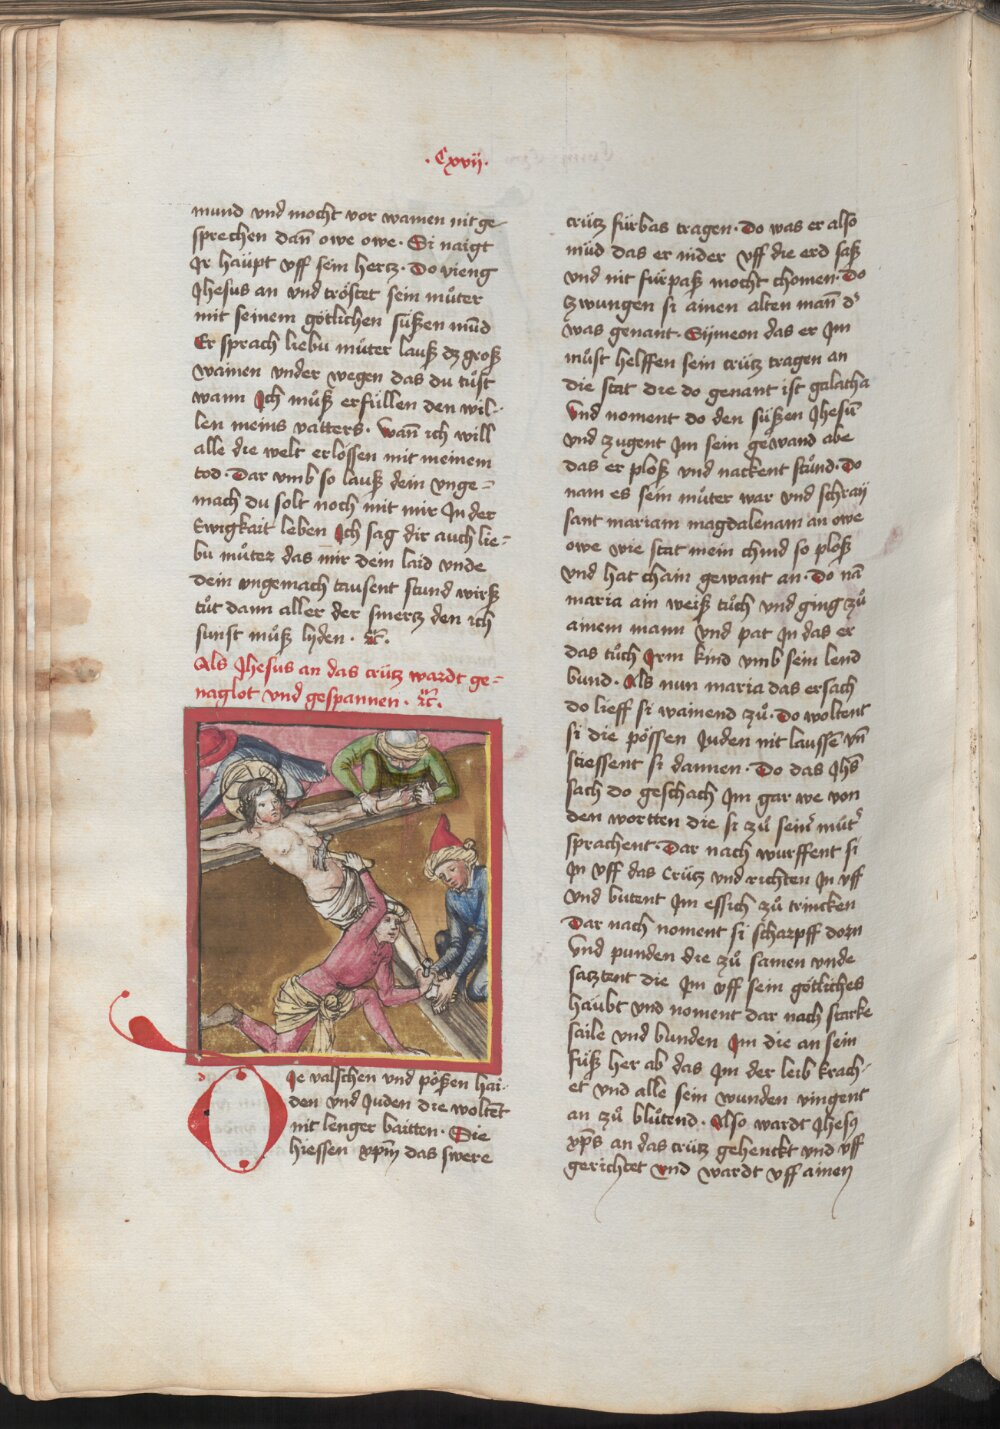 .Cxvij.
mund vnd mocht vor wainen nit ge-
sprechen dan̄ owe owe. Si naigt
Jr haüpt vff sein hertz. Do vieng
Jhesus an vnd tröstet sein můter
mit seinem götlichen süßen mūd
Er sprach liebu můter lauß dz groß
wainen vnder wegen das du tůst
wann Jch můß erfüllen den wil-
len meins vatters. wan̄ ich will
alle die welt erlössen mit meinem
tod. Dar vmb so lauß dein vnge-
mach du solt noch mit mir Jn der
Ewigkait leben Jch sag dir auch lie-
bu můter das mir dein laid vnde
dein vngemach tausent stund wirß
tůt dann aller der smertz den ich
sunst můß lyden. ꝛc̄.
Als Jhesus an das crütz wardt ge-
naglot vnd gespannen. ꝛc̄.
Die valschen vnd pößen hai-
den vnd Juden die woltēt
nit lenger baitten. Sie
hiessen xp̄m das swere
crütz fürbas tragen. Do was er also
müd das er nider vff die erd saß
vnd nit fürpaß mocht chomen. Do
zwungen si ainen alten man̄ d'
was genant. Symeon das er Jm
můst helffen sein crütz tragen an
die stat die do genant ist galatha
Vnd noment do den süßen Jhesū
vnd zugent Jm sein gewand abe
das er ploß vnd nackent stůnd. Do
nam es sein můter war vnd schray
sant mariam magdalenam an owe
owe wie stat mein chind so ploß
vnd hat chain gewant an. Do nā
maria ain weiß tůch vnd ging zů
ainem mann vnd pat Jn das er
das tůch Jrm kind vmb sein lend
bund. Als nun maria das ersach
do lieff si wainend zů. Do woltent
si die pössen Juden nit laussē vn̄
stiessent si dannen. Do das Jhs̄
sach do geschach Jm gar we von
den wortten die si zů sein' můt'
sprachent. Dar nach wurffent si
Jn vff das Crütz vnd richten Jn vff
vnd butent Jm essich zů trincken
Dar nach noment si scharpff dorn
vnd punden die zů samen vnde
satztent die Jm vff sein götliches
haubt vnd noment dar nach starke
saile vnd bunden Jm die an sein
füß her ab das Jm der leib krach-
et vnd alle sein wunden vingent
an zů blůtend. Also wardt Jhesꝰ
xp̄s an das crütz gehenckt vnd vff
gerichtet vnd wardt vff ainen